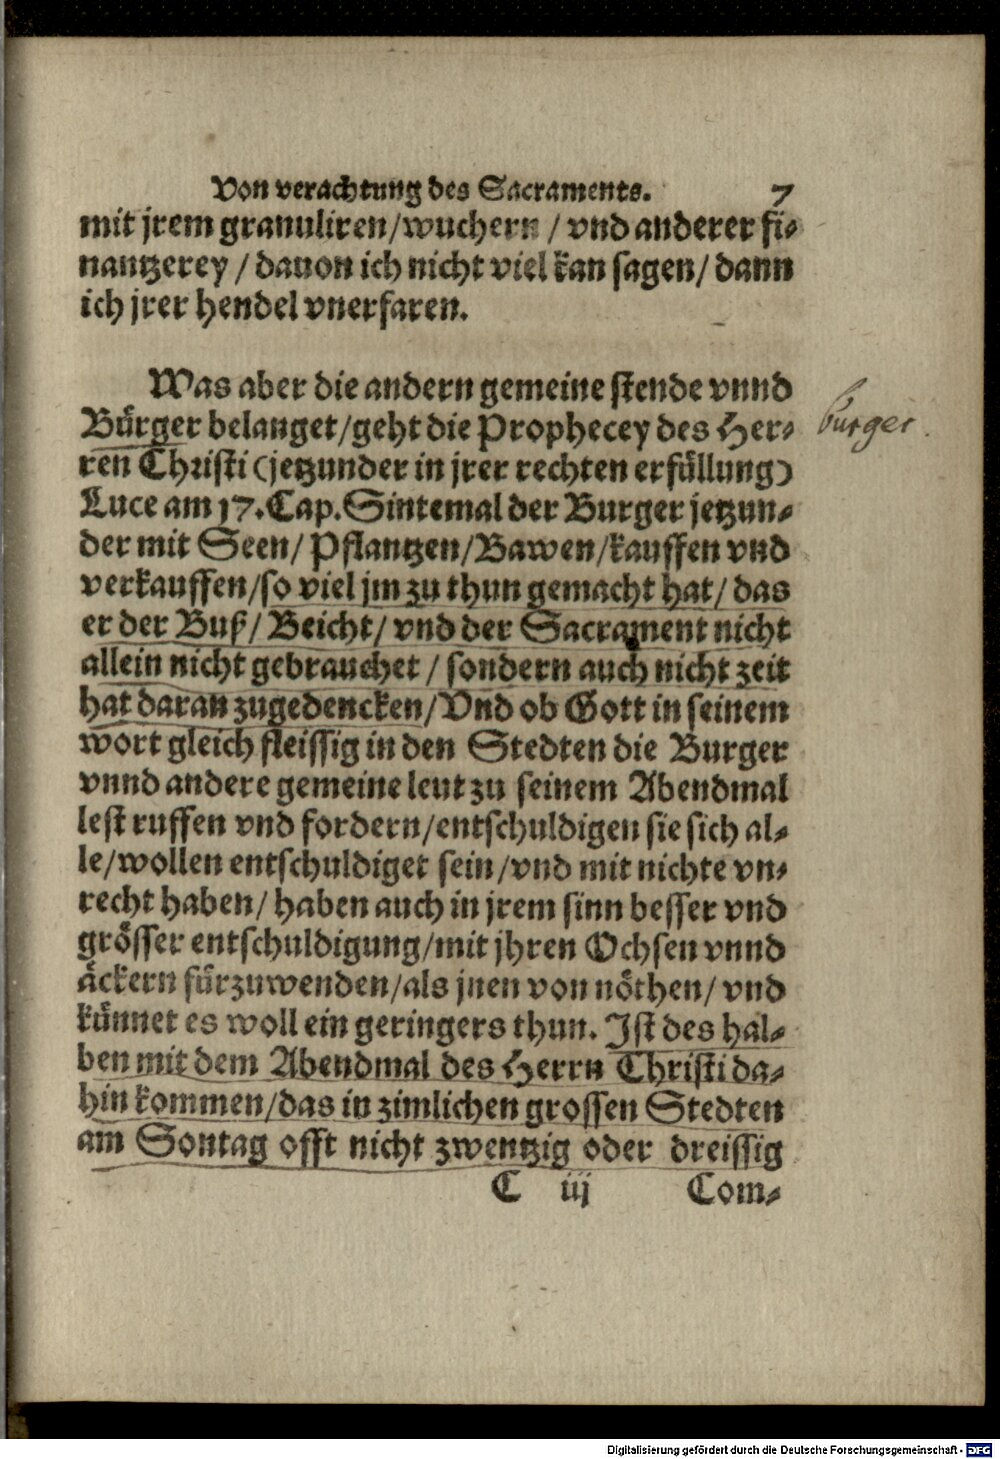 Von verachtung des Sacraments. 7
mit jrem granuliren/wuchern / vnd anderer fi-
nantzerey / dauon ich nicht viel kan sagen/ dann
ich jrer hendel vnerfaren.
Was aber die andern gemeine stende vnnd
Bürger belanget/geht die Prophecey des Her-
ren Christi (jetzunder in jrer rechten erfüllung)
Luce am 17. Cap. Sintemal der Burger jetzun-
der mit Seen/ Pflantzen/Bawen/kauffen vnd
verkauffen/so viel jm zu thun gemacht hat/ das
er der Buß/ Beicht/ vnd der Sacrament nicht
allein nicht gebrauchet / sondern auch nicht zeit
hat daran zugedencken/Vnd ob Gott in seinem
wort gleich fleissig in den Stedten die Burger
vnnd andere gemeine leut zu seinem Abendmal
lest ruffen vnd fordern/entschuldigen sie sich al-
le/wollen entschuldiget sein/vnd mit nichte vn-
recht haben/ haben auch in jrem sinn besser vnd
grösser entschuldigung/mit jhren Ochsen vnnd
äckern fürzuwenden/als jnen von nöthen/ vnd
künnet es woll ein geringers thun. Ist des hal-
ben mit dem Abendmal des Herrn Christi da-
hin kommen/das in zimlichen grossen Stedten
am Sontag offt nicht zwentzig oder dreissig
C iij Com-
burger.
Digitalisierung gefördert durch die Deutsche Forschungsgemeinschaft - DFG